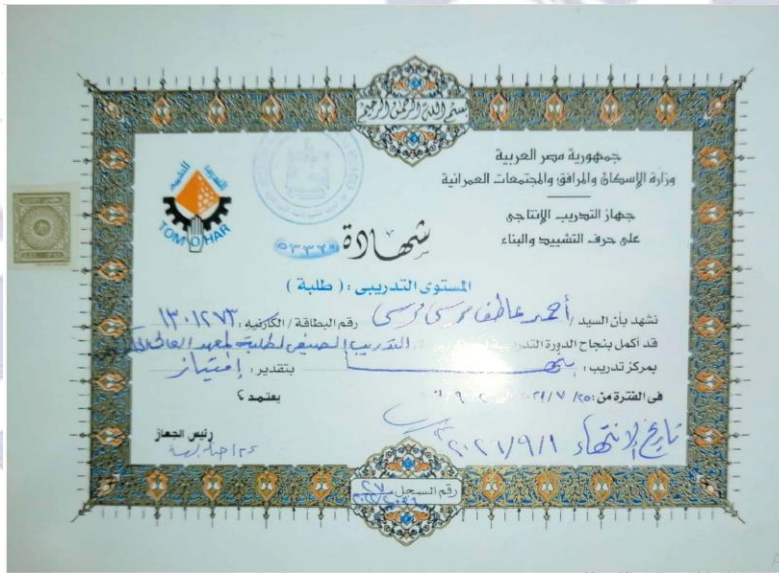 بسم الله الرحمن الرحيم
جمهورية مصر العربية
وزارة الإسكان والمرافق والمجتمعات العمرانية
جهاز التدريب الإنتاجى
على حرف التشييد والبناء
TOMOHAR
شهادة
المستوى التدريبى : ( طلبة )
نشهد بأن السيد / أحمد عاطف موسى موسى رقم البطاقة / الكارنيه : ١٣٠١٢٧٣
قد أكمل بنجاح الدورة التدريبية التدريب الصيفى لطلبة المعهد العالى
بمركز تدريب : بنها بتقدير : إمتياز
فى الفترة من : ٢٥/ ٧ / ٢٠٢١
يعتمد ؟
تاريخ الإنتهاء ٢٠٢١/٩/١
رئيس الجهاز
رقم السجل ٢٧